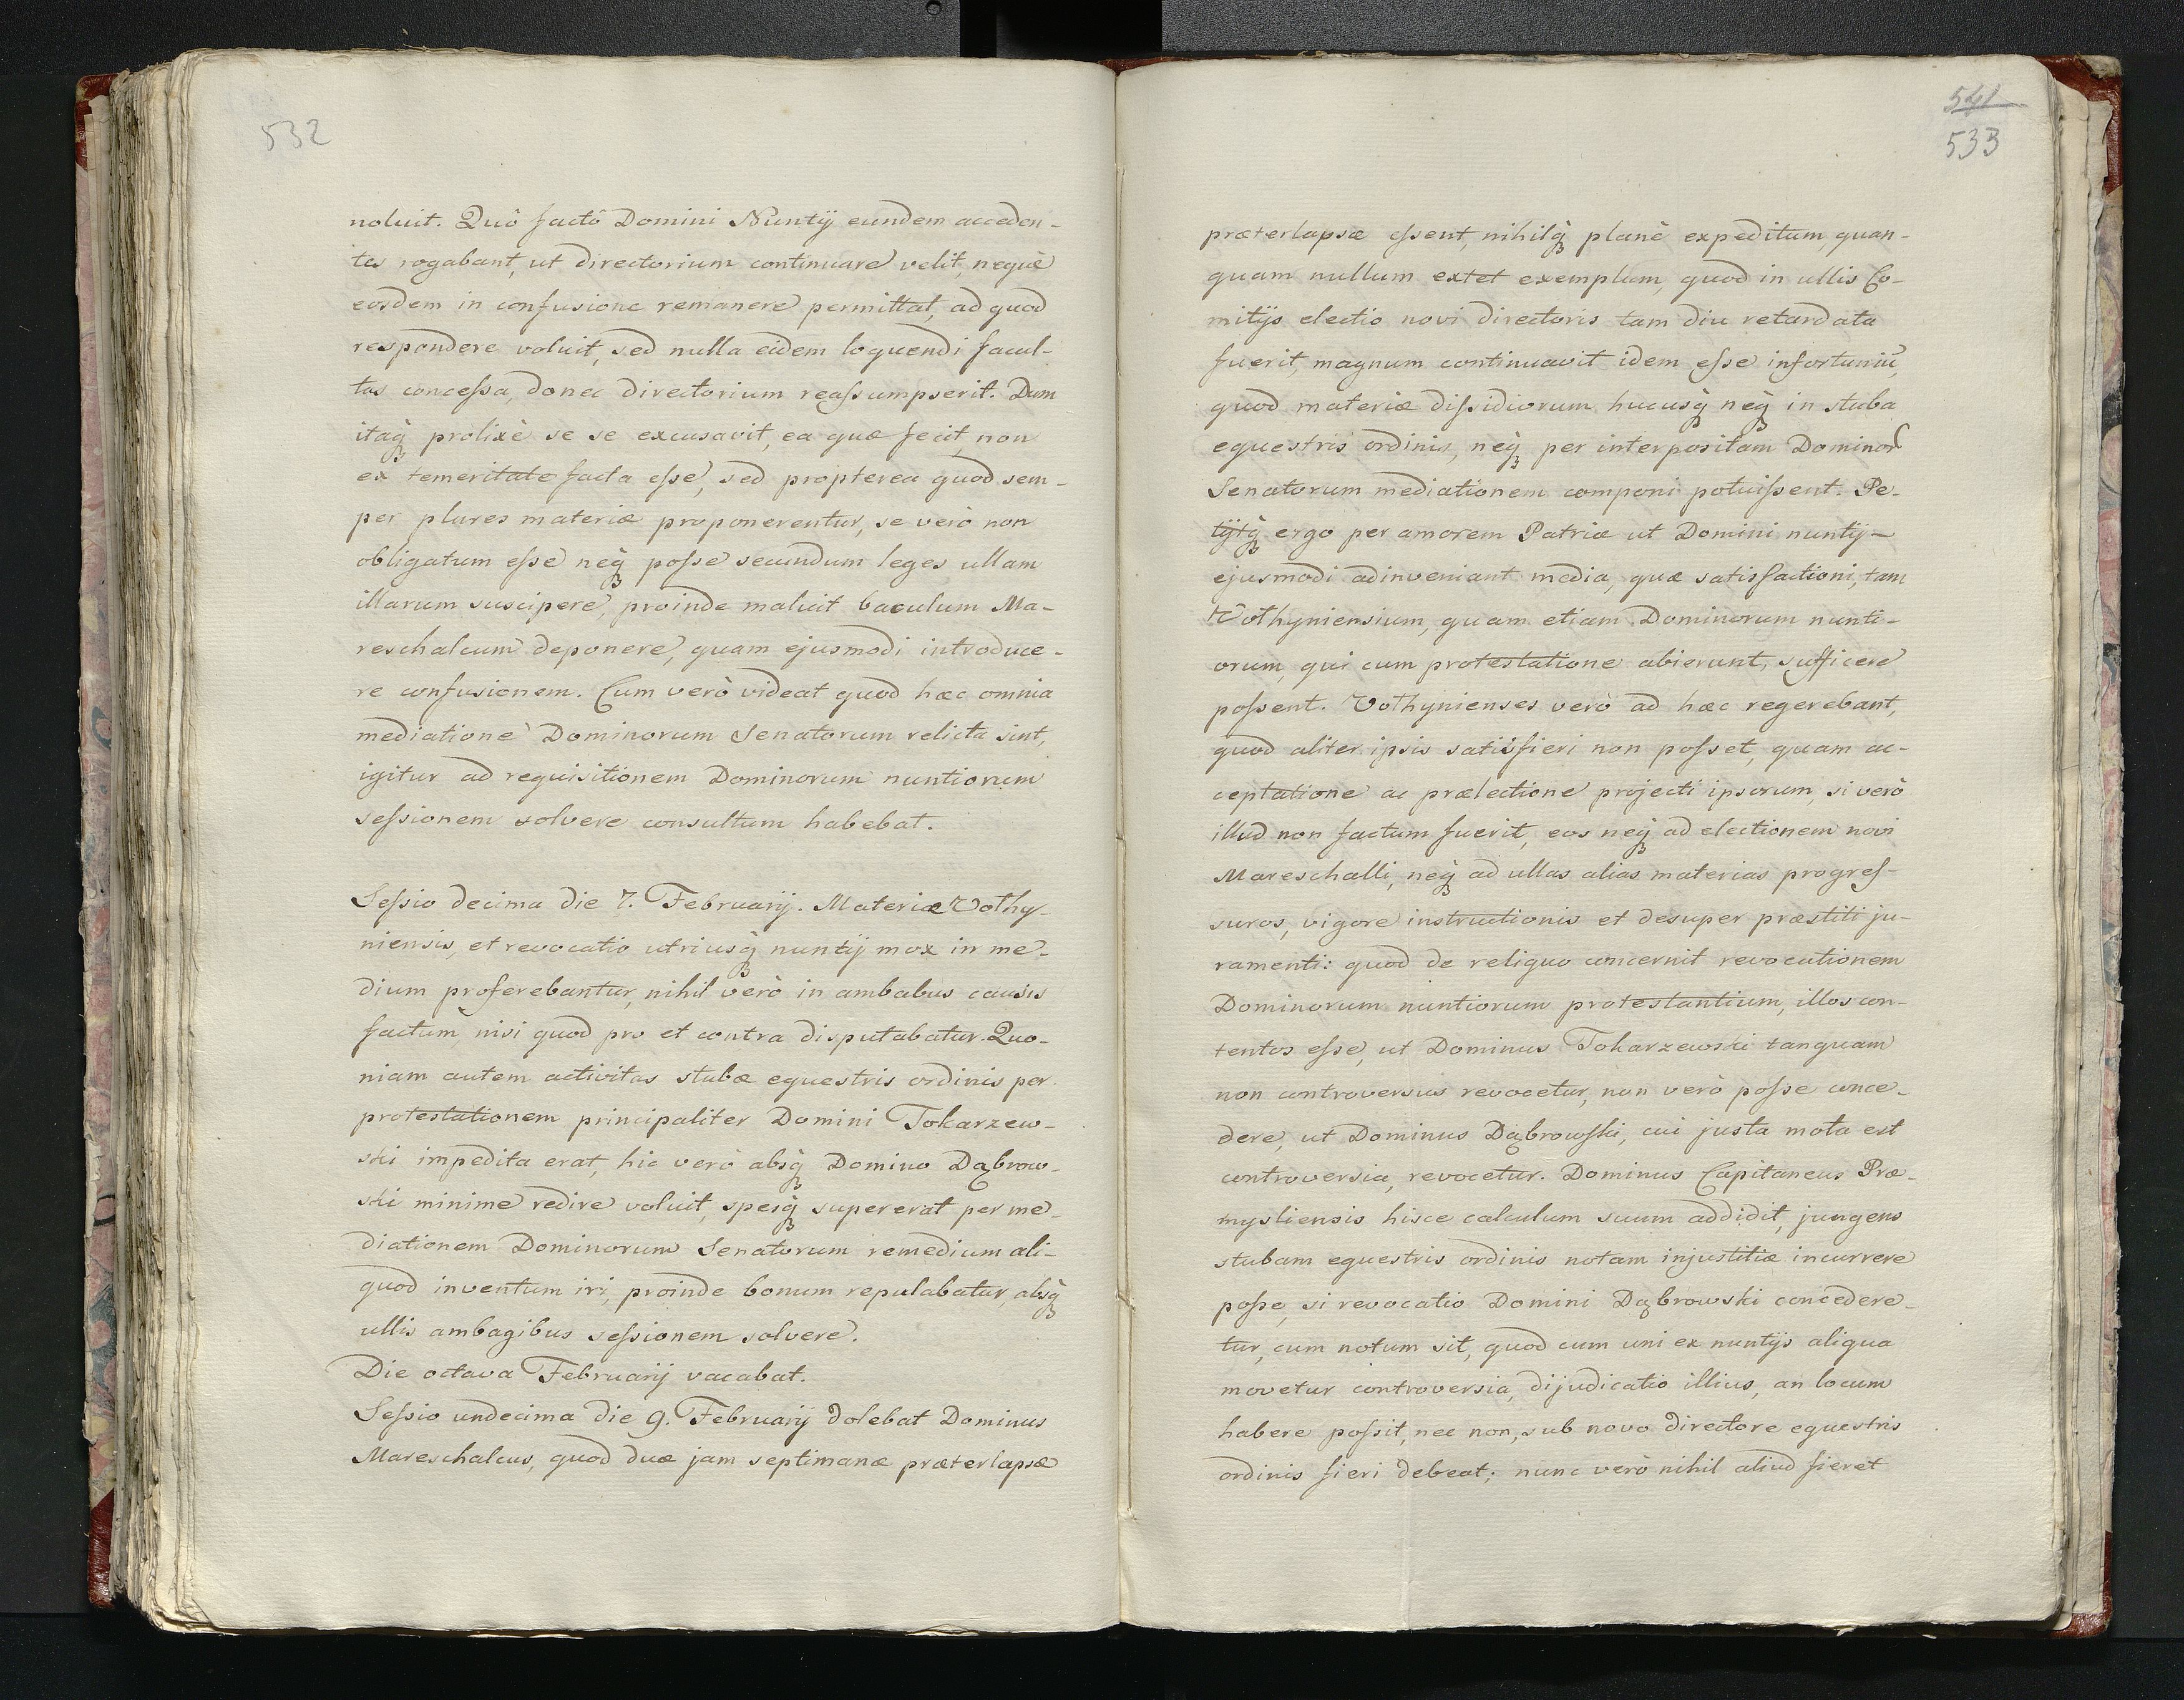 532
noluit. Quô factô Domini Nuntij eundem acceden-
tes rogabant, ut directorium continuare velit, neque
eosdem in confusione remanere permittat, ad quod
respondere voluit, sed nulla eidem loquendi facul-
tas concessa, donec directorium reassumpserit. Dum
itaq̀ prolixè se se excusavit, ea quæ fecit, non
ex temeritate facta esse, sed propterea quod sem-
per plures materiæ proponerentur, se verò non
obligatum esse neq̀ posse secundum leges ullam
illarum suscipere, proinde maluit baculum Ma-
reschalcum deponere, quam ejusmodi introduce-
re confusionem. Cum verò videat quod hæc omnia
mediatione Dominorum Senatorum relicta sint,
igitur ad requisitionem Dominorum nuntiorum
sessionem solvere consultum habebat.
Sessio decima die 7. Februarij. Materiæ Volhy-
niensis, et revocatio utriusq̀ nuntij mox in me-
dium proferebantur, nihil verò in ambabus causis
factum, nisi quod pro et contra disputabatur. Quo-
niam autem activitas stubæ equestris ordinis per
protestationem principaliter Domini Tokarzew-
ski impedita erat, hic verò absq̀ Domino Dąbrow-
ski minime redire voluit, spesq̀ supererat per me-
diationem Dominorum Senatorum remedium ali-
quod inventum iri, proinde bonum reputabatur, absq̀
ullis ambagibus sessionem solvere.
Die octava Februarij vacabat.
Sessio undecima die 9. Februarij dolebat Dominus
Mareschalcus, quod duæ jam septimanæ præterlapsæ
541
533
præterlapsæ essent, nihilq̀ planè expeditum, quan-
quam nullum extet exemplum, quod in ullis Co-
mitijs electio novi directoris tam diu retardata
fuerit, magnum continuavit idem esse infortuniū,
quod materiæ dissidiorum hucusq̀ neq̀ in stuba
equestris ordinis, neq̀ per interpositam Dominor
Senatorum mediationem componi potuissent. Pe-
tijtq̀ ergo per amorem Patriæ ut Domini nuntij
ejusmodi adinveniant media, quæ satisfactioni, tam
Volhyniensium, quam etiam Dominorum nunti-
orum, qui cum protestatione abierunt, sufficere
possent. Volhynienses verò ad hæc regerebant,
quod aliter ipsis satisfieri non posset, quam ac-
ceptatione ac prælectione projecti ipsorum, si verò
illud non factum fuerit, eos neq̀ ad electionem novi
Mareschalli, neq̀ ad ullas alias materias progres-
suros, vigore instructionis et desuper præstiti ju-
ramenti: quod de reliquo concernit revocationem
Dominorum nuntiorum protestantium, illos con-
tentos esse, ut Dominus Tokarzewski tanquam
non controversus revocetur, non verò posse conce-
dere, ut Dominus Dąbrowski, cui justa mota est
controversia, revocetur. Dominus Capitaneus Præ-
mysliensis hisce calculum suum addidit, jungens
stubam equestris ordinis notam injustitiæ incurrere
posse, si revocatio Domini Dąbrowski concedere-
tur, cum notum sit, quod cum uni ex nuntijs aliqua
movetur controversia, dijudicatio illius, an locum
habere possit, nec non, sub novo directore equestris
ordinis fieri debeat; nunc verò nihil aliud fieret